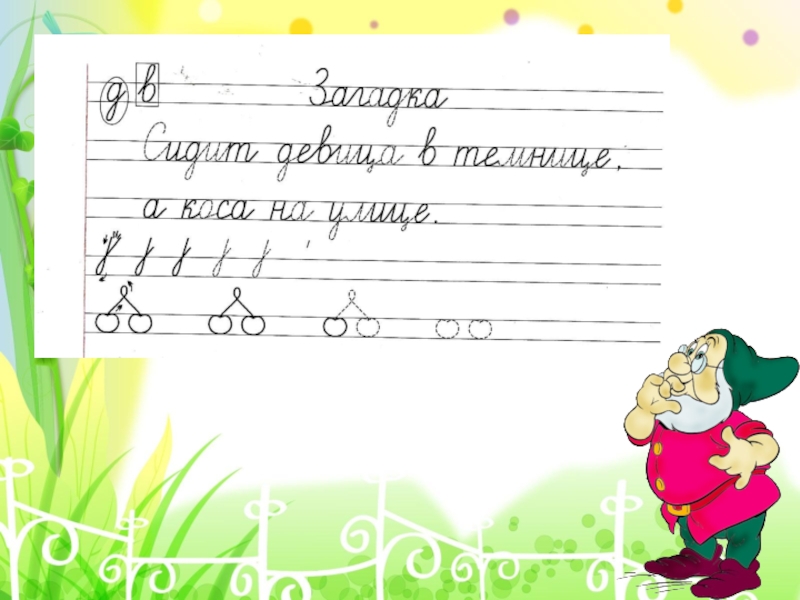 д в Загадка
Сидит девица в темнице,
а коса на улице.